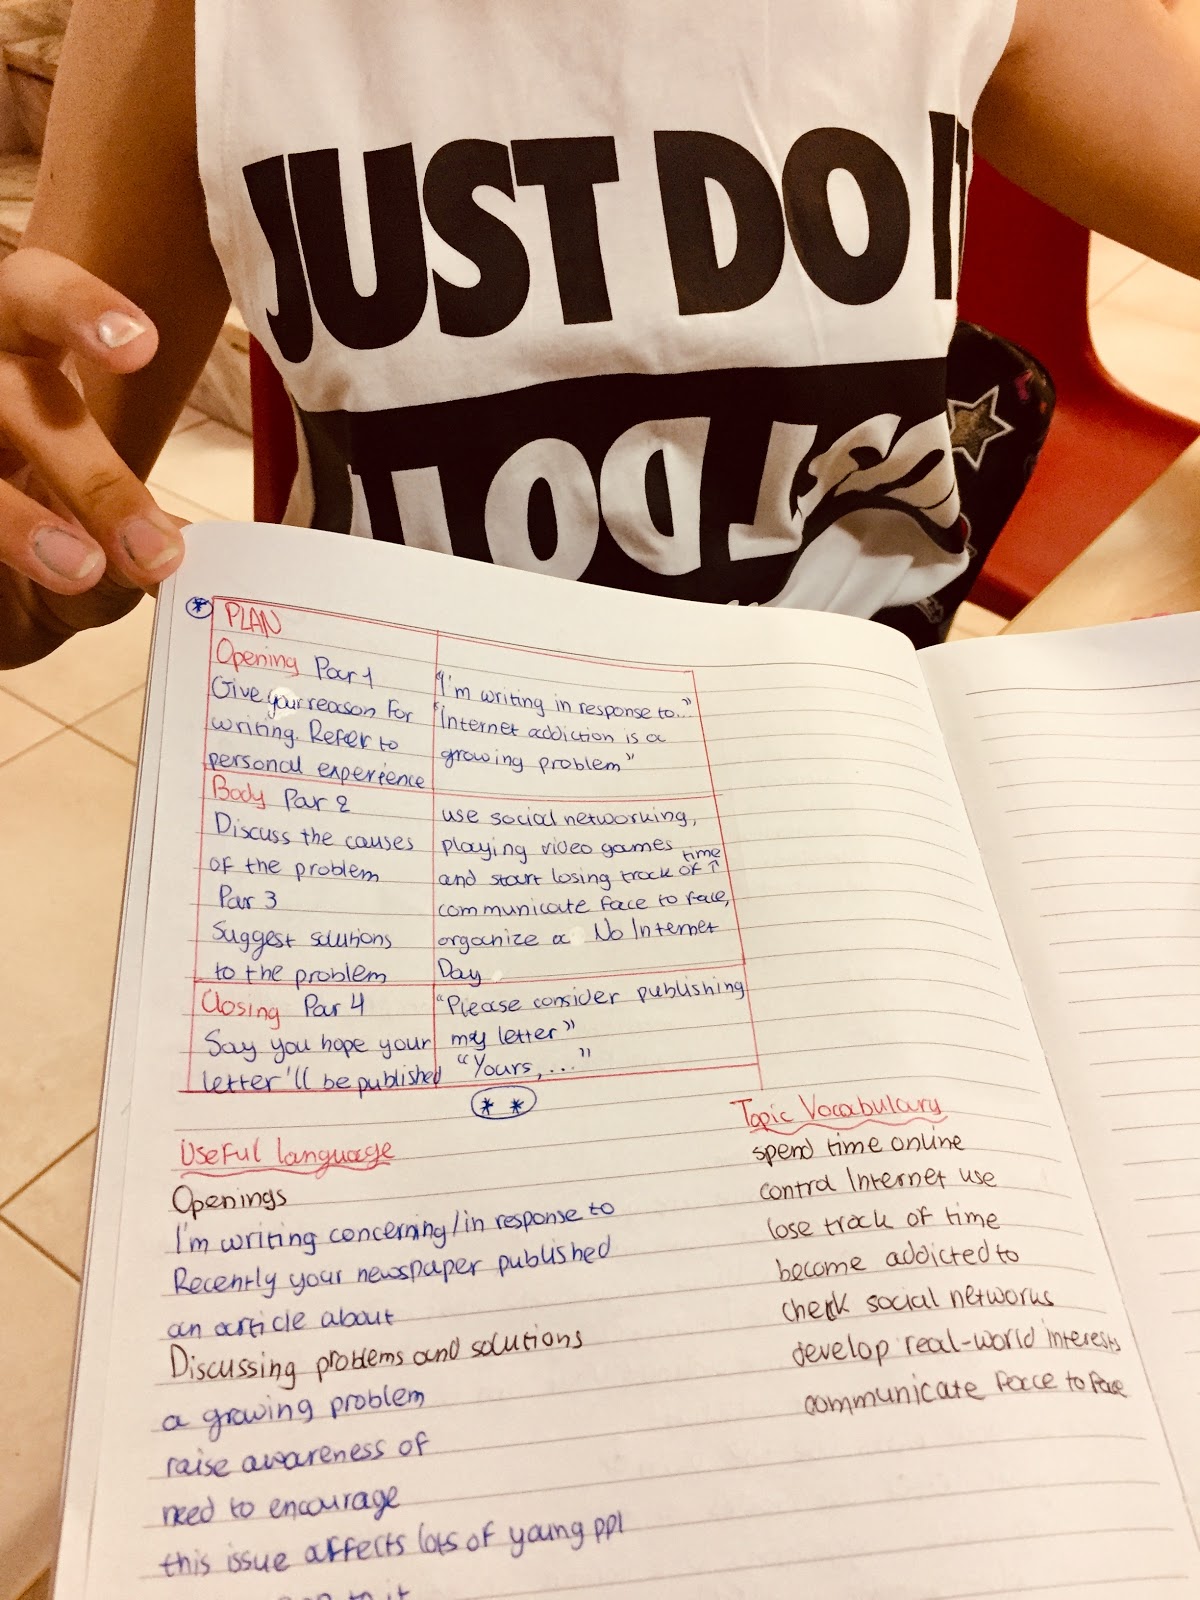 JUST DO IT
JUST DO IT
* PLAN
Opening Par 1
Give your reason for
writing. Refer to
personal experience
"I'm writing in response to..."
"Internet addiction is a
growing problem"
Body Par 2
Discuss the causes
of the problem
Par 3
Suggest solutions
to the problem
use social networking,
playing video games
and start losing track of ↑ time
communicate face to face,
organize a No Internet
Day
Closing Par 4
Say you hope your
letter'll be published
"Please consider publishing
my letter"
"Yours, ..."
* *
Useful language
Openings
I'm writing concerning/in response to
Recently your newspaper published
an article about
Discussing problems and solutions
a growing problem
raise awareness of
need to encourage
this issue affects lots of young ppl
to it
Topic Vocabulary
spend time online
control Internet use
lose track of time
become addicted to
check social networks
develop real-world interests
communicate face to face